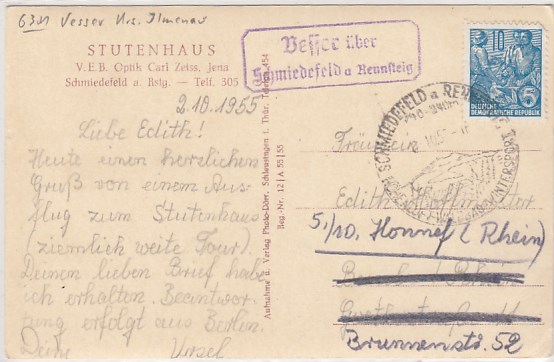 6301 Vesser Krs. Ilmenau
STUTENHAUS
V.E.B. Optik Carl Zeiss, Jena
Schmiedefeld a. Rstg. — Telf. 305
Vesser über
Schmiedefeld a Rennsteig
DEUTSCHE
DEMOKRATISCHE REPUBLIK
5
SCHMIEDEFELD a RENNSTEIG
WINTERSPORT
2.10.1955
Liebe Edith!
Heute einen herzlichen
Gruß von einem Aus-
flug zum Stutenhaus
(ziemlich weite Tour).
Deinen lieben Brief habe
ich erhalten. Beantwor-
tung erfolgt aus Berlin.
Deine Ursel
Aufnahme u. Verlag Photo-Dörr, Schleusingen i. Thür. Telefon 454
Reg.-Nr. 12 | A 55 | 55
Fräulein
Edith
5./10. Honnef (Rhein)
Brunnenstr. 52